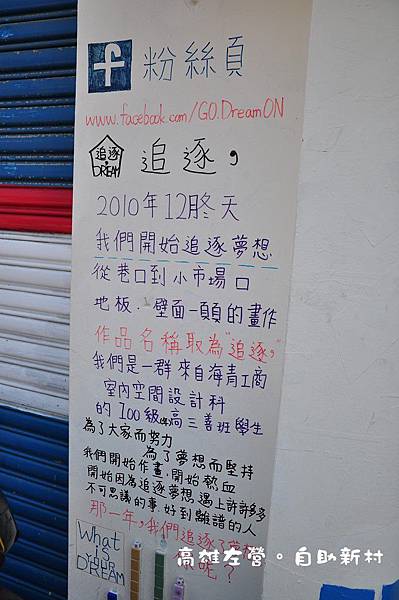 f 粉絲頁
www.facebook.com/GO.DreamON
追逐 DREAM 追逐,
2010年12月冬天
我們開始追逐夢想
從巷口到小市場口
地板.壁面一頁頁的畫作
作品名稱取為"追逐,"
我們是一群來自海青工商
室內空間設計科
的100級高三善班學生
為了大家而努力
為了夢想而堅持
我們開始作畫.開始熱血
開始因為追逐夢想.遇上許許多多
不可思議的事.好到離譜的人
那一年,我們追逐了夢想
呢?
What is YOUR DREAM
高雄左營。自助新村